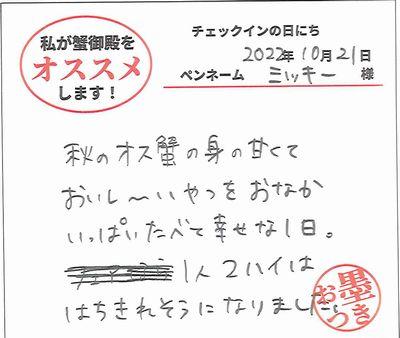 私が蟹御殿を
オススメ
します！
チェックインの日にち
2022年10月21日
ペンネーム ミッキー 様
秋のオス蟹の身の甘くて
おいし〜いやつをおなか
いっぱいたべて幸せな1日。
1人2ハイは
はちきれそうになりました。
墨
おつき